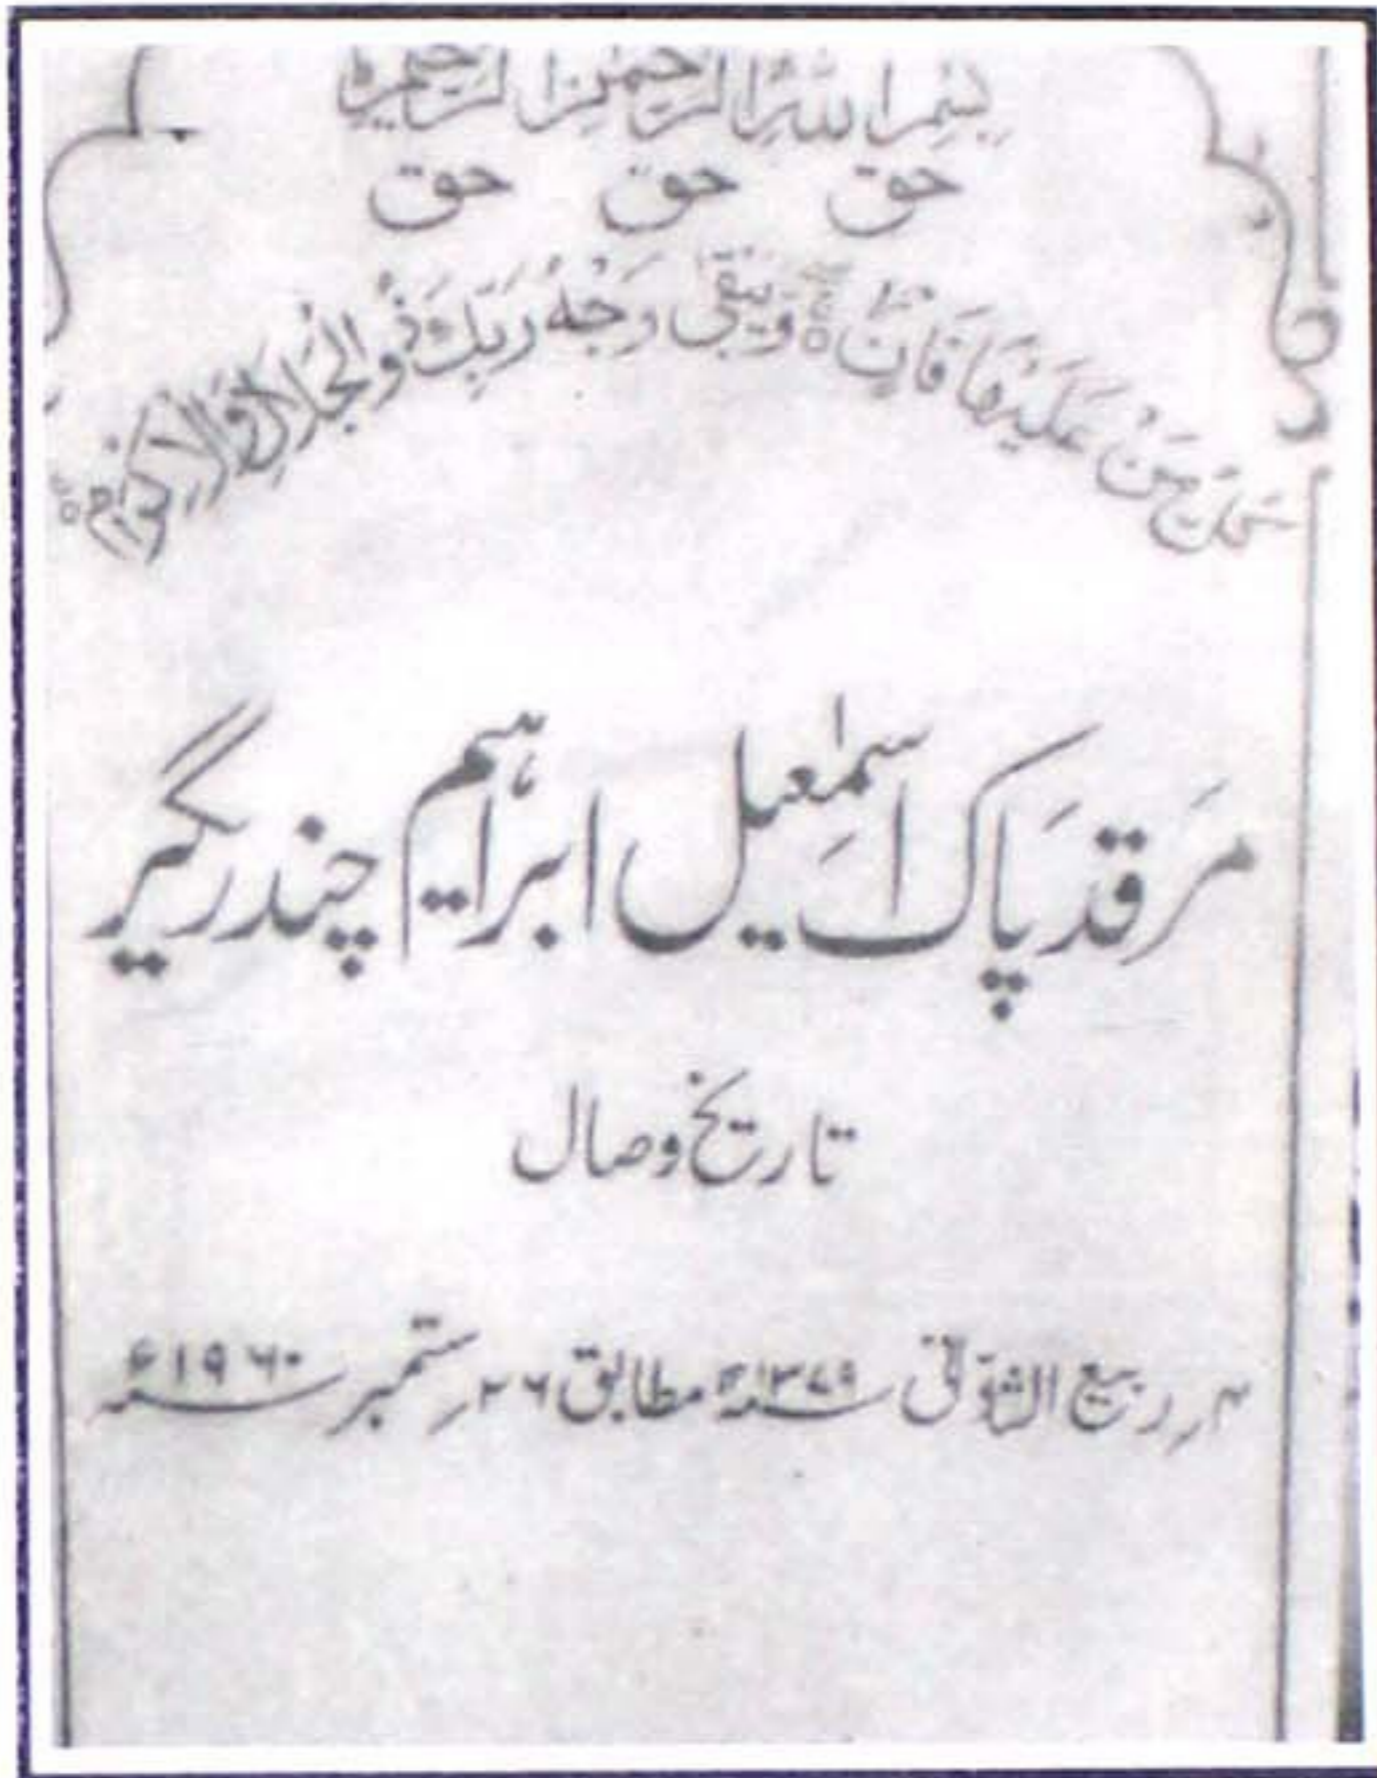 بِسْمِ اللّٰهِ الرَّحْمٰنِ الرَّحِيْمِ ہ
حق حق حق
كُلُّ مَنْ عَلَيْهَا فَانٍ ۝ وَّيَبْقٰى وَجْهُ رَبِّكَ ذُو الْجَلَالِ وَالْاِكْرَامِ ۝
مَرقَدِ پَاک اسمٰعِیل ابراہیم چندریگر
تاریخ وصال
۴؍ ربیع الثانی ۱۳۷۹ھ مطابق ۲۶؍ ستمبر ۱۹۶۰ء